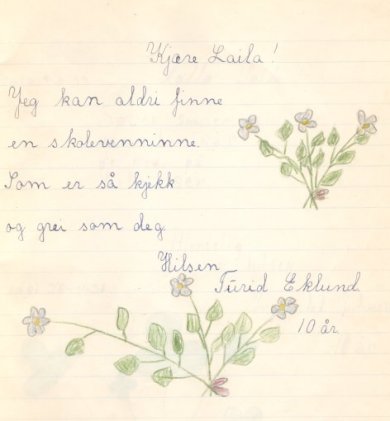 Kjære Laila!
Jeg kan aldri finne
en skolevenninne.
Som er så kjekk
og grei som deg
Hilsen
Turid Eklund
10 år